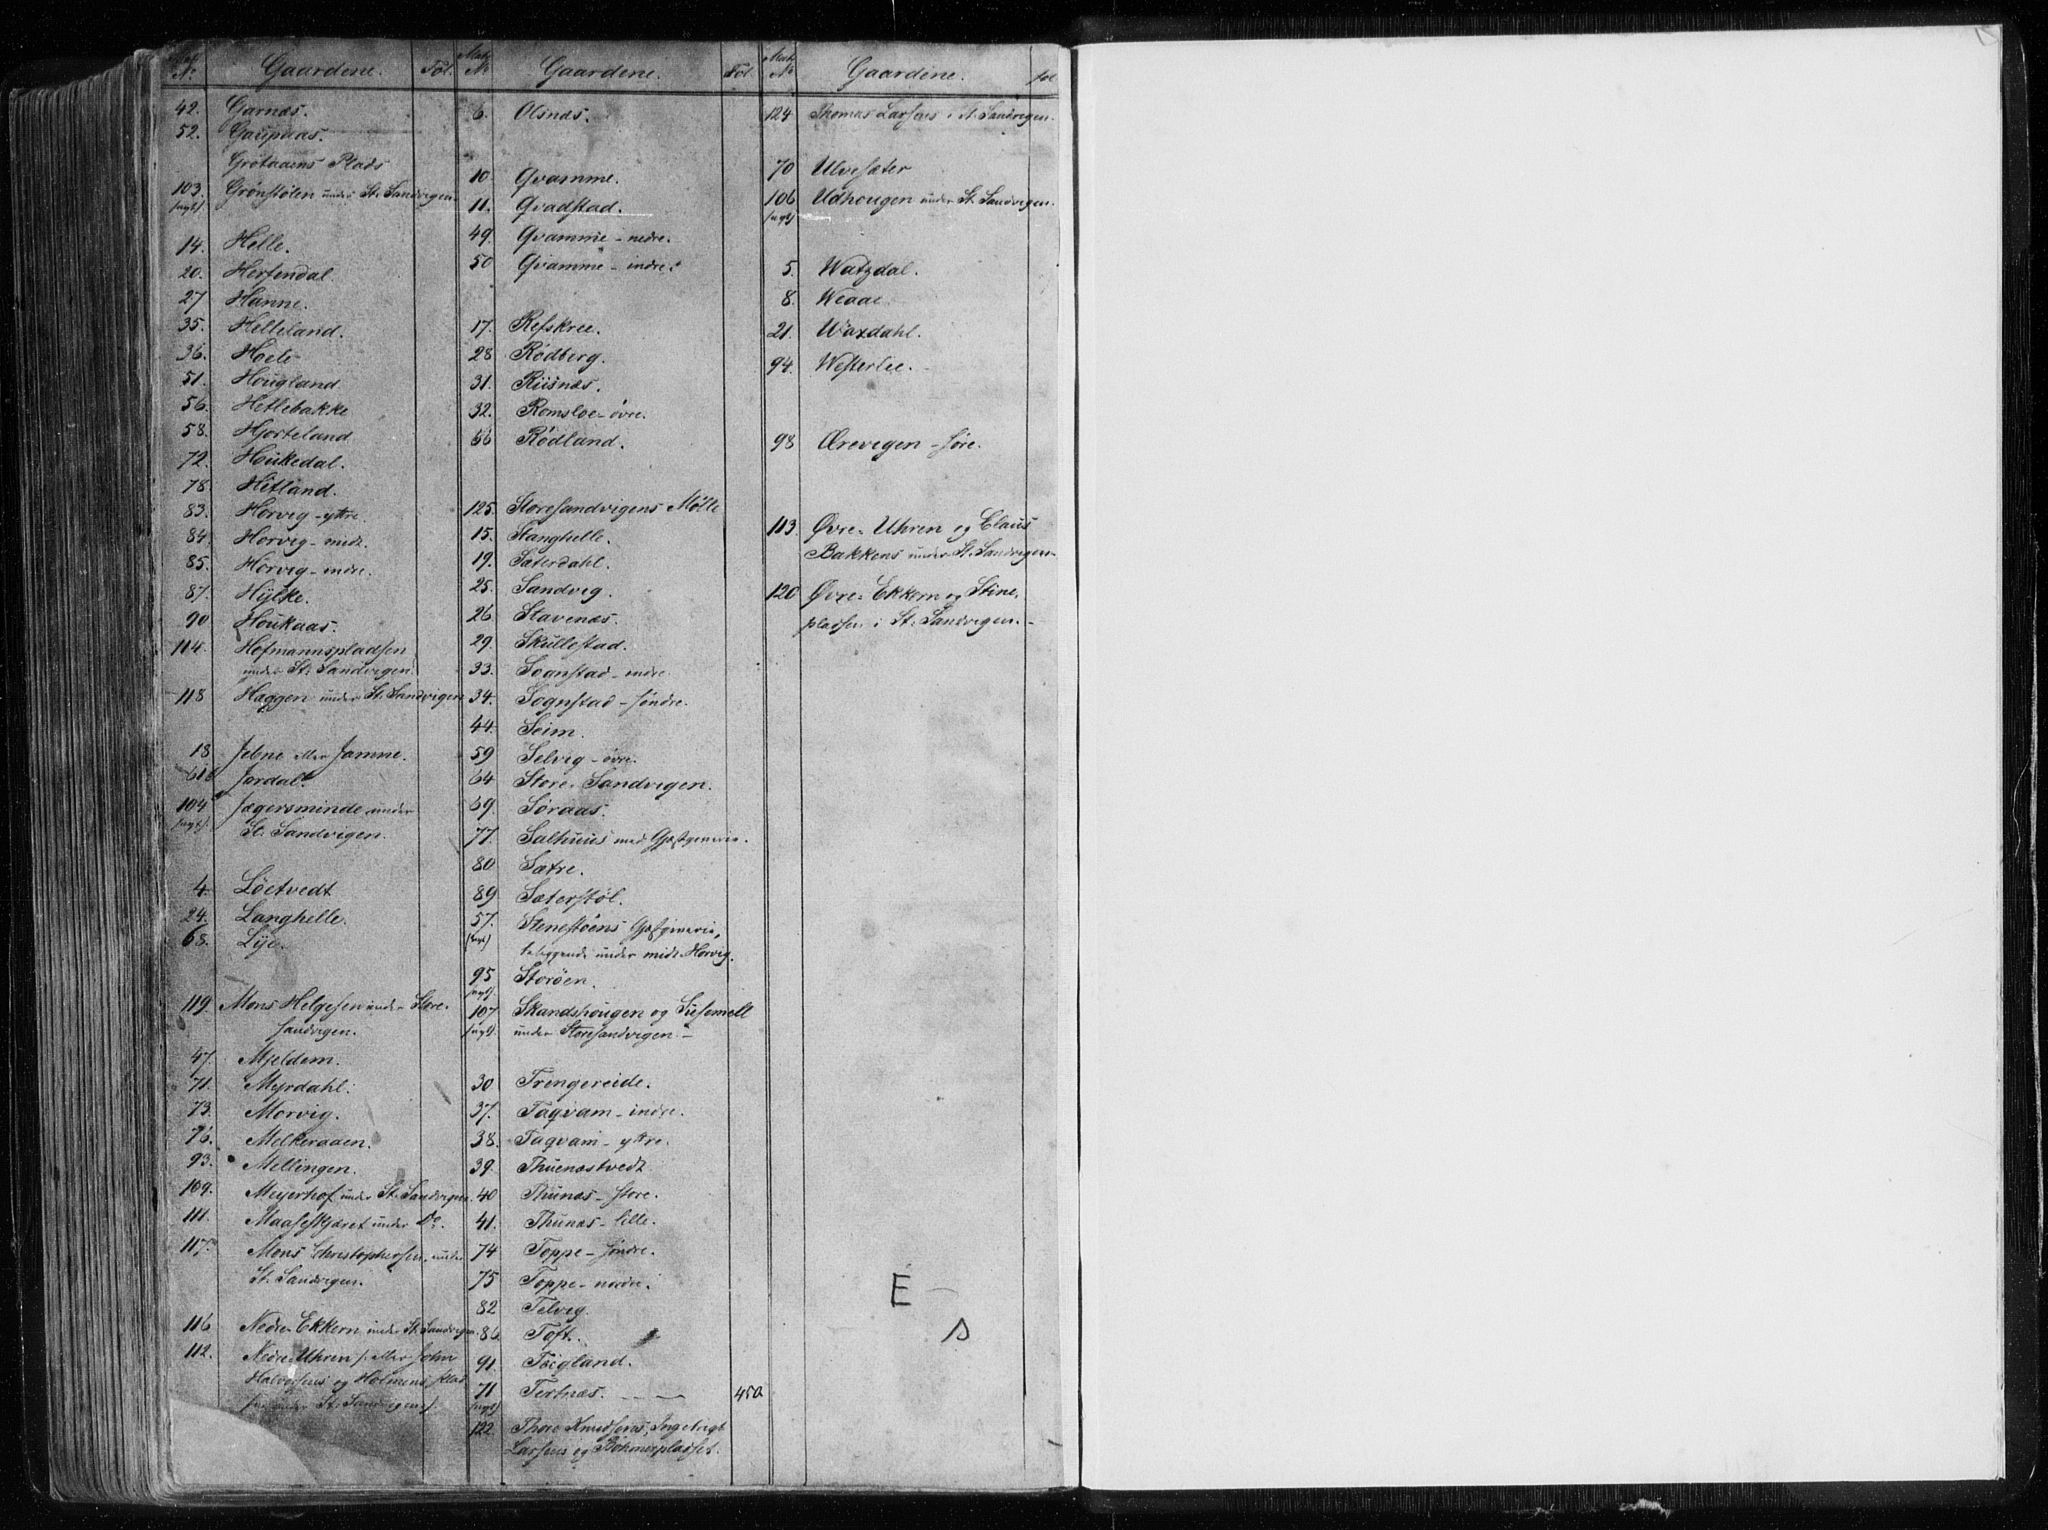 Mat. No Gaardene. Fol.
42. Garnæs.
52. Gaupaas.
Grotaaens Plads
103. Grønstølen under St. Sandvigen.
(nyt)
14. Helle.
20. Herfendal.
27 Hanne.
35. Helleland.
36. Hoele
51. Hougland.
56. Hetlebakke
58. Hjorteland
72. Houkedal.
78. Hitland.
83. Horvig - ytre.
84. Horvig - midt.
85. Horvig - indre.
87. Hylke.
90 Houkaas.
114. Hofmannspladsen
under St. Sandvigen.
118 Haggen under St. Sandvigen
18 Jebne eller Jamme.
Jordal
104 Jægersminde under
(nyt) St. Sandvigen.
4. Løetvedt
24. Langhelle.
68. Lye.
119. Mons Helgesen under Store-
sandvigen.
47. Mjeldem.
71. Myrdahl.
73. Morvig.
76. Melkeraaen.
93. Mellingen.
109. Meyerhof under St. Sandvigen.
111. Maaseskjæret under Do.
117. Mons Christophersen, under
St. Sandvigen.
116 Nedre Ekkern under St. Sandvigen.
112. Nedre Uhren /: eller John
Halvorsens og Holmens plad
sen under St. Sandvigen :/
Mat. No Gaardene. Fol.
6. Olsnæs.
10. Qvamme.
11. Qvadstad.
49. Qvamme - nedre.
50 Qvamme - indre.
17. Refskree.
28 Rødberg.
31. Riisnæs.
32. Romsloe - øvre.
66 Rødland.
125. Storesandvigens Mølle
15. Stanghelle.
19. Sæterdahl.
25. Sandvig.
26 Stavenæs.
29. Skullestad.
33. Sognstad - indre
34. Sognstad - søndre.
44. Seim.
59 Selvig - øvre.
64 Store-Sandvigen.
69. Søraas.
77. Salhuus med Gjæstgiverie.
80 Sætre.
89 Sæterstøl.
57. Stenestøens Gjæstgiverie,
(nyt) beliggende under midt Horvig.
95 Storøen.
(nyt)
107 Skandshougen og Susemell
(nyt) under Storesandvigen. -
30 Trengereide.
37. Tagvam - indre.
38. Tagvam - ytre.
39. Thuenæstvedt
40 Thunæs - store.
41. Thunæs - lille.
74 Toppe - søndre.
75 Toppe - nordre.
82 Telvig.
86. Toft.
91. Teigland.
71 Tertnæs. - - - 450
(nyt)
122 Thore Knudsens, Ingebrigt
Larsens og Bøhmerpladset.
Mat. No Gaardene. fol
124 Thomas Larsens i St. Sandvigen.
70 Ulvesæter
106 Udhougen under St. Sandvigen.
(nyt)
5. Watzdal.
8. Weaae.
21. Waxdahl.
94. Westerlee. -
98 Ørevigen - søre.
113. Øvre-Uhren og Claus
Bakkens under St. Sandvigen
120 Øvre-Ekkern og Stine-
pladsen i St. Sandvigen. -
E